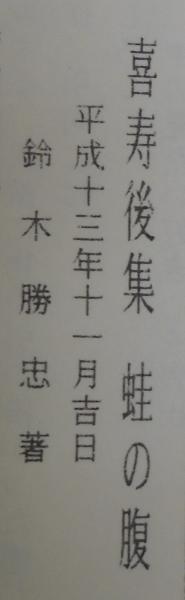 喜寿後集　蛙の腹
平成十三年十一月吉日
鈴木勝忠著